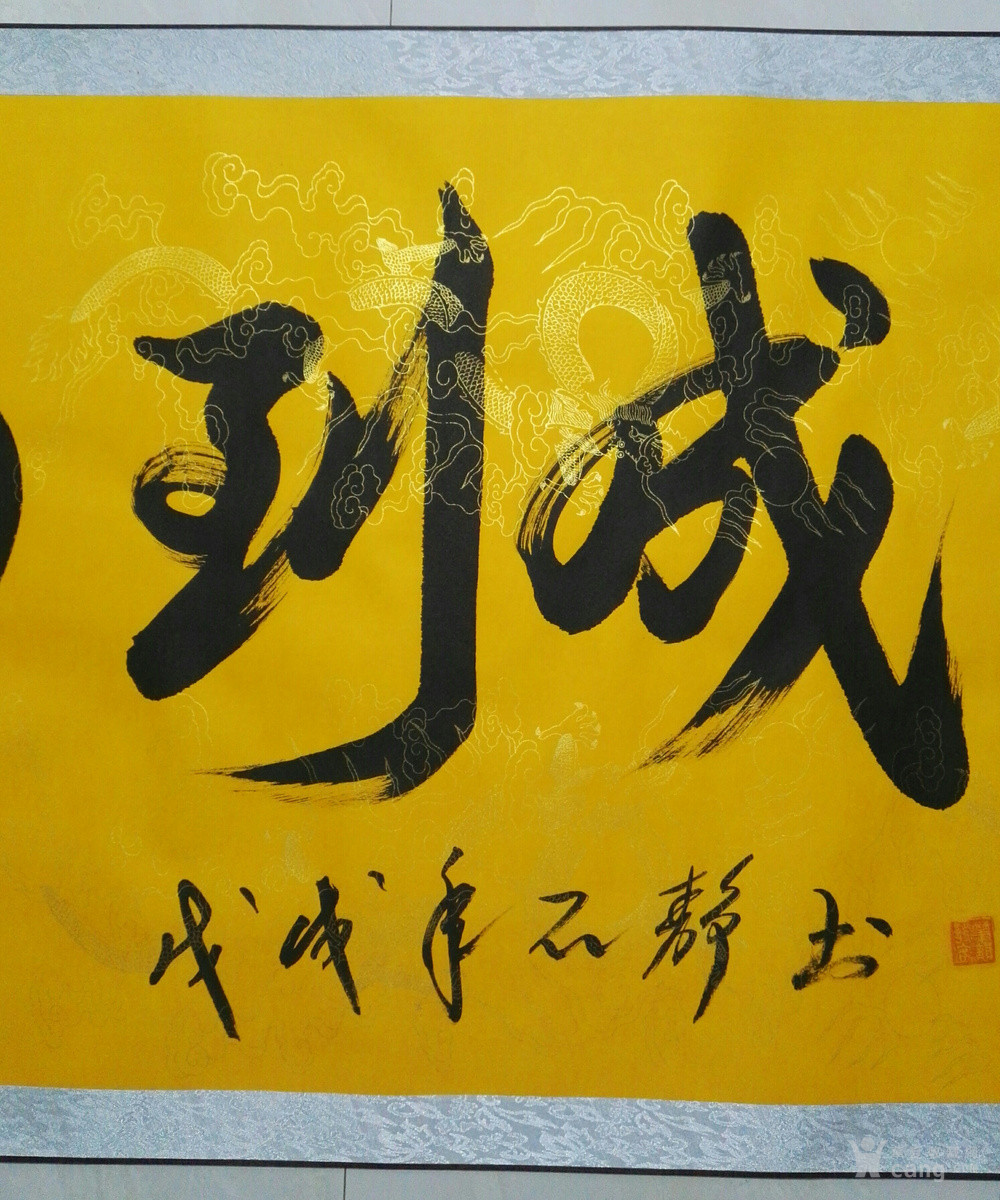 到成
戊戌年石静书
cang